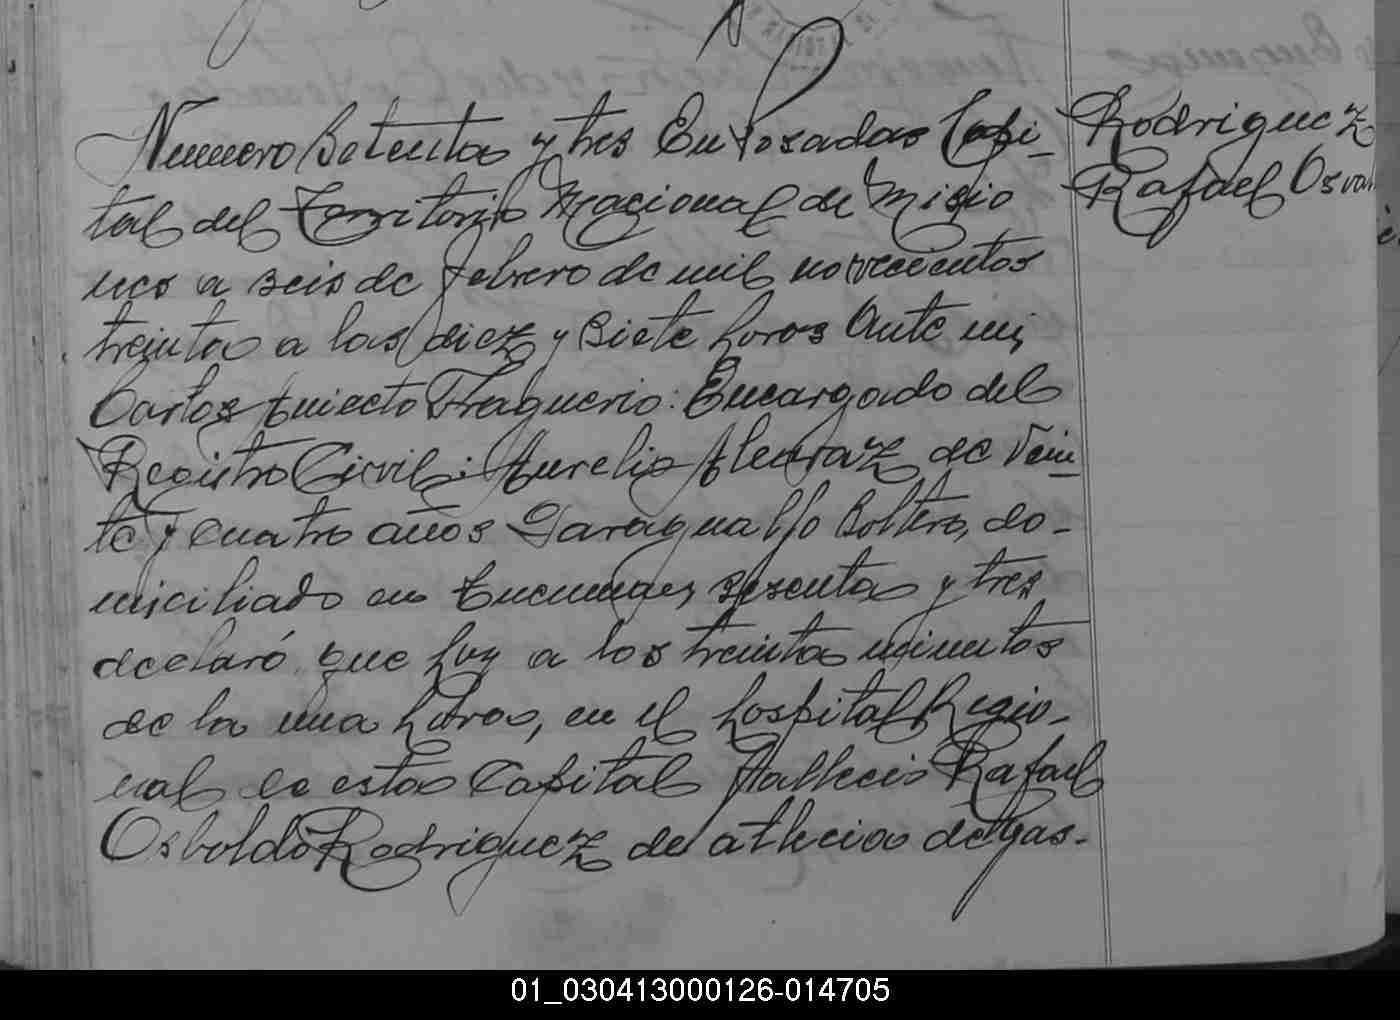 Numero Setenta y tres En Posadas Capi-
tal del Territorio Nacional de Misio
nes a seis de febrero de mil novecientos
treinta a las diez y siete horas Ante mi,
Carlos Aniecto Fraguerio: Encargado del
Registro Civil: Aurelio Alcaraz de Vein-
te y cuatro años Paraguallo Soltero, do-
miciliado en Tucuman sesenta y tres
declaró que hoy a los treinta minutos
de la una horas, en el hospital Regio-
nal de esta Capital fallecio Rafael
Osboldo Rodriguez de atrecia de gas-
Rodriguez
Rafael Osval
01_030413000126-014705